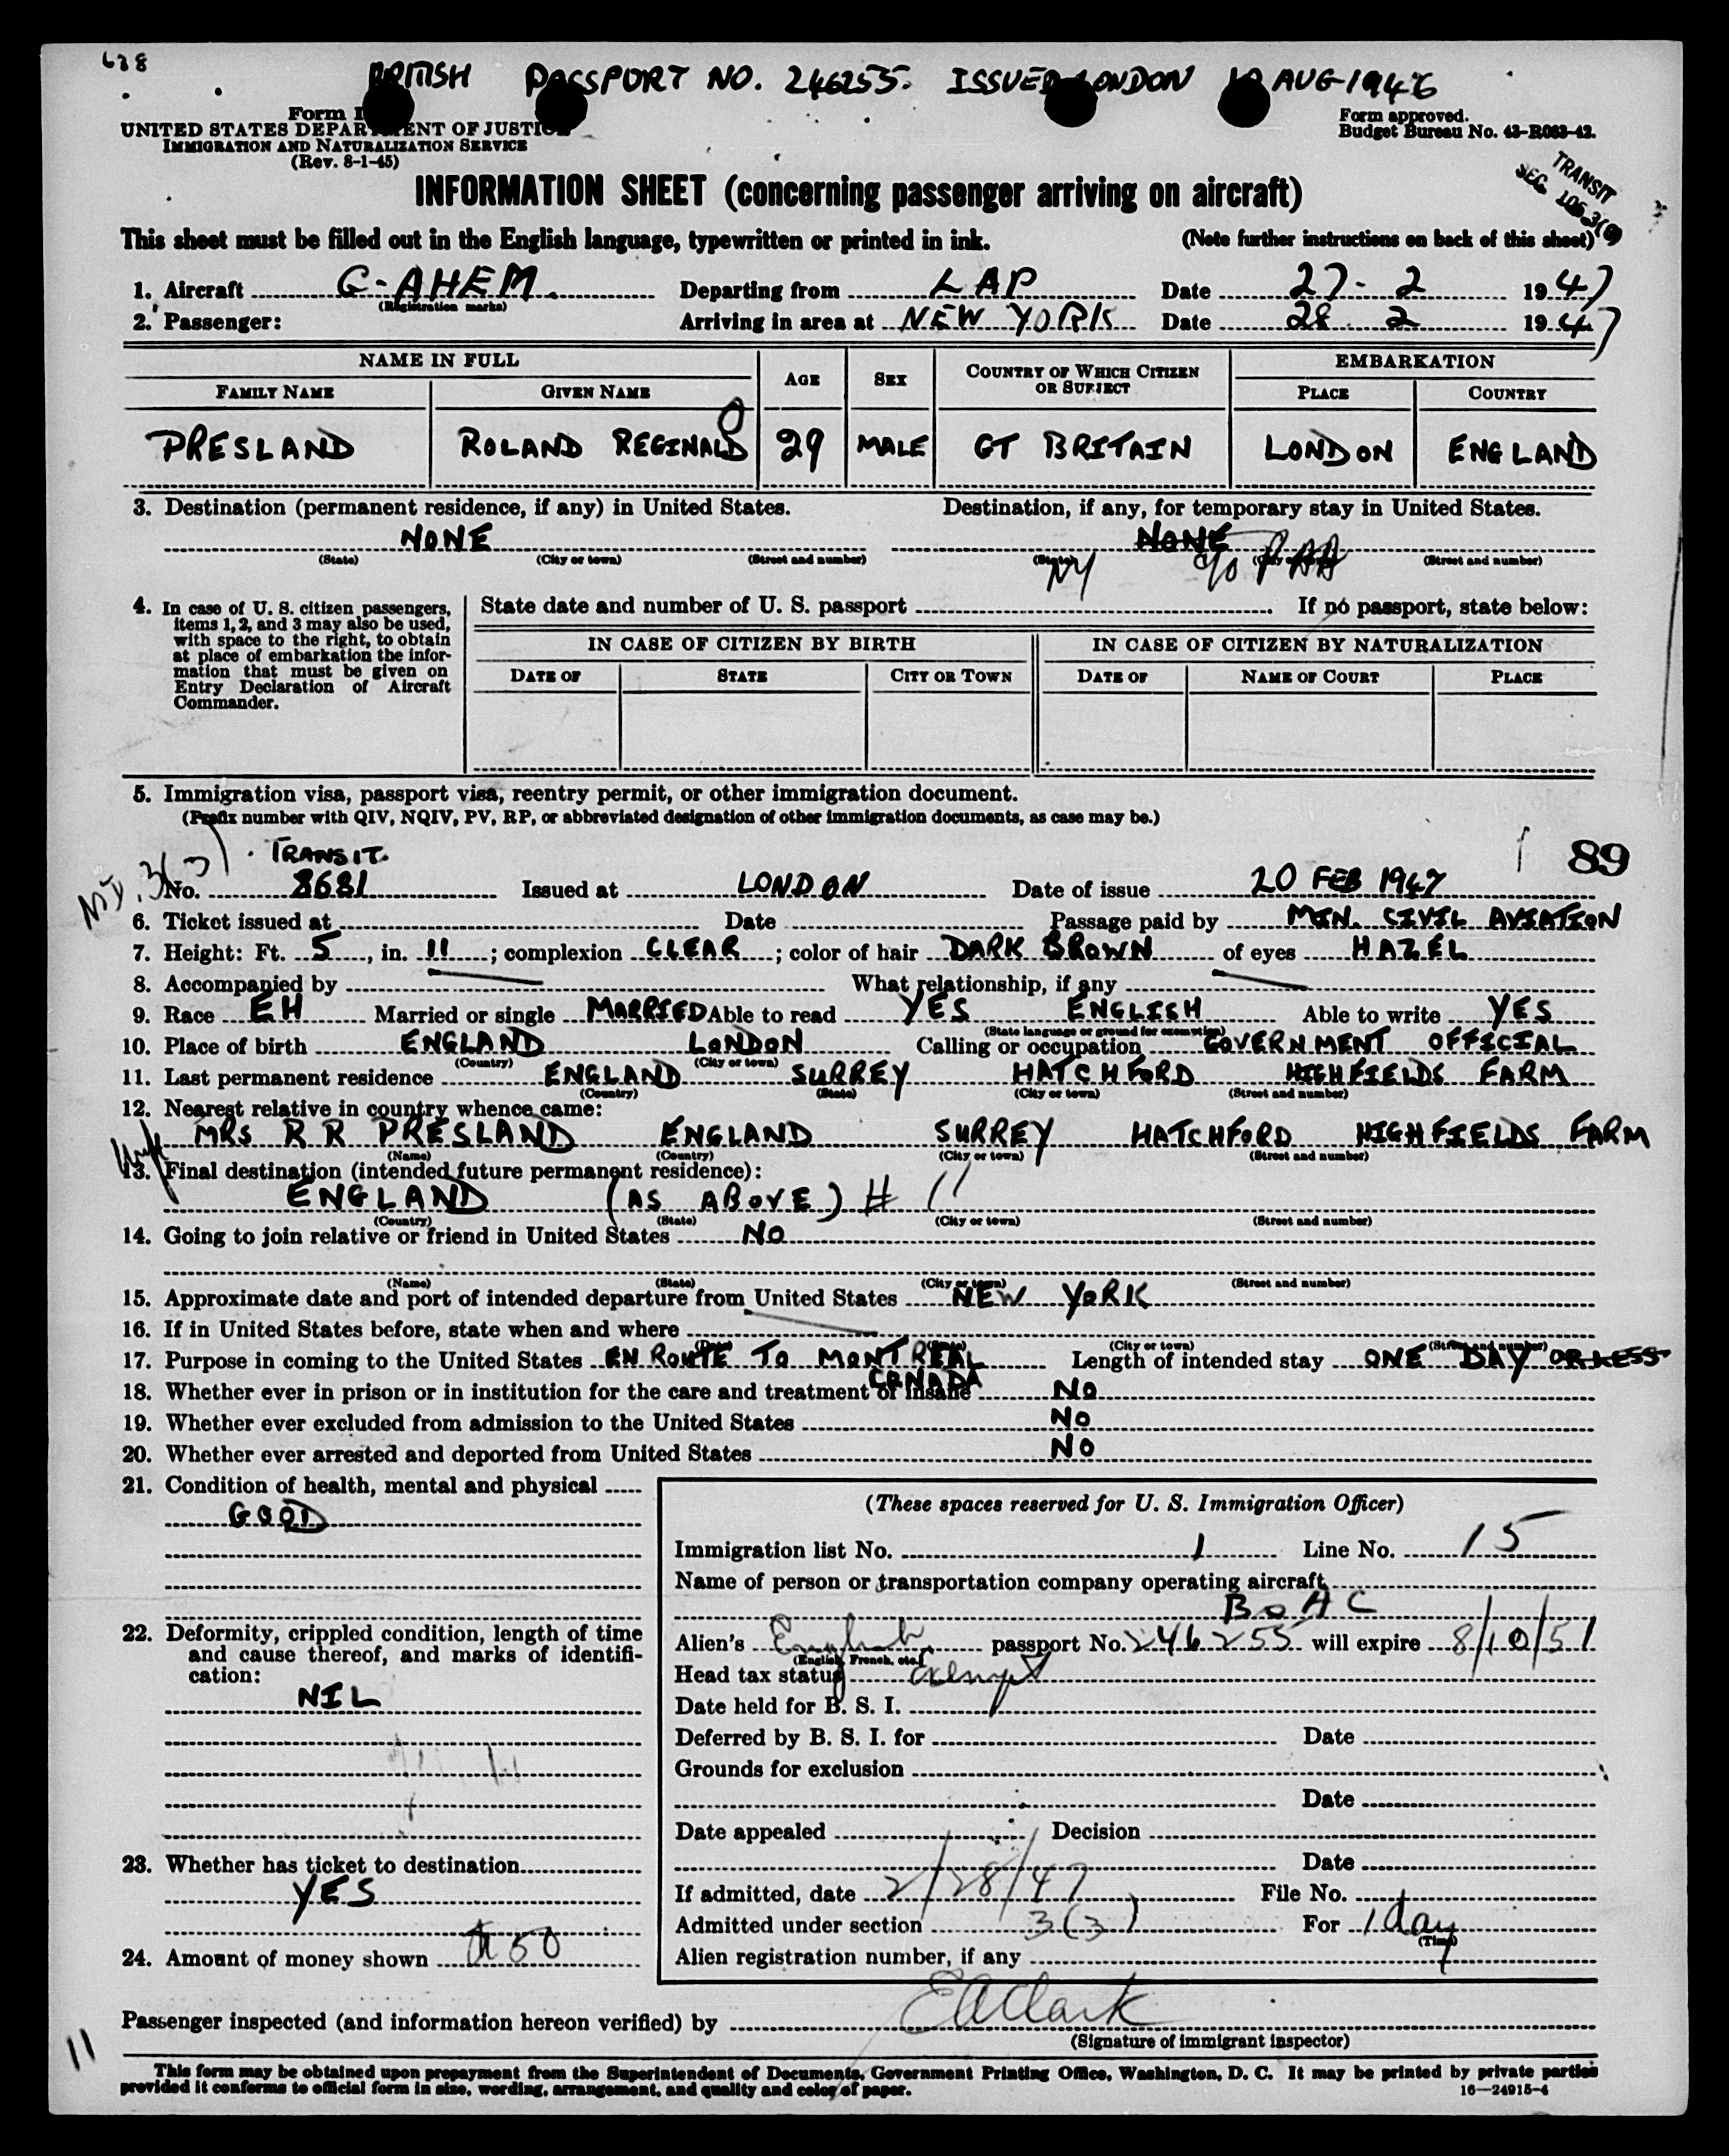 638
BRITISH PASSPORT NO. 246255. ISSUED LONDON AUG 1946
Form I
UNITED STATES DEPARTMENT OF JUSTICE
IMMIGRATION AND NATURALIZATION SERVICE
(Rev. 8-1-45)
Form approved.
Budget Bureau No. 43-R063-42.
TRANSIT
SEC. 106.3(
INFORMATION SHEET (concerning passenger arriving on aircraft)
This sheet must be filled out in the English language, typewritten or printed in ink. (Note further instructions on back of this sheet)
1. Aircraft G-AHEM. Departing from LAP Date 27-2 1947
(Registration marks)
2. Passenger: Arriving in area at NEW YORK Date 28 2 1947
NAME IN FULL AGE SEX COUNTRY OF WHICH CITIZEN OR SUBJECT EMBARKATION
FAMILY NAME GIVEN NAME PLACE COUNTRY
PRESLAND ROLAND REGINALD 29 MALE GT BRITAIN LONDON ENGLAND
3. Destination (permanent residence, if any) in United States. Destination, if any, for temporary stay in United States.
NONE NONE
(State) (City or town) (Street and number) (State) (City or town) (Street and number)
NY c/o PAA
4. In case of U. S. citizen passengers, items 1, 2, and 3 may also be used, with space to the right, to obtain at place of embarkation the information that must be given on Entry Declaration of Aircraft Commander.
State date and number of U. S. passport . If no passport, state below:
IN CASE OF CITIZEN BY BIRTH IN CASE OF CITIZEN BY NATURALIZATION
DATE OF STATE CITY OR TOWN DATE OF NAME OF COURT PLACE
5. Immigration visa, passport visa, reentry permit, or other immigration document.
(Prefix number with QIV, NQIV, PV, RP, or abbreviated designation of other immigration documents, as case may be.)
TRANSIT. 89
3(3)
No. 8681 Issued at LONDON Date of issue 20 FEB 1947
6. Ticket issued at Date Passage paid by MIN. CIVIL AVIATION
7. Height: Ft. 5, in. 11; complexion CLEAR; color of hair DARK BROWN of eyes HAZEL
8. Accompanied by What relationship, if any
9. Race EH Married or single MARRIED Able to read YES ENGLISH Able to write YES
(State language or ground for exemption)
10. Place of birth ENGLAND LONDON Calling or occupation GOVERNMENT OFFICIAL
(Country) (City or town)
11. Last permanent residence ENGLAND SURREY HATCHFORD HIGHFIELDS FARM
(Country) (State) (City or town) (Street and number)
12. Nearest relative in country whence came:
MRS R R PRESLAND ENGLAND SURREY HATCHFORD HIGHFIELDS FARM
(Name) (Country) (City or town) (Street and number)
13. Final destination (intended future permanent residence):
ENGLAND (AS ABOVE) # 11
(Country) (State) (City or town) (Street and number)
14. Going to join relative or friend in United States NO
(Name) (State) (City or town) (Street and number)
15. Approximate date and port of intended departure from United States NEW YORK
16. If in United States before, state when and where
(Date) (State) (City or town) (Street and number)
17. Purpose in coming to the United States EN ROUTE TO MONTREAL CANADA Length of intended stay ONE DAY OR LESS
18. Whether ever in prison or in institution for the care and treatment of insane NO
19. Whether ever excluded from admission to the United States NO
20. Whether ever arrested and deported from United States NO
21. Condition of health, mental and physical
GOOD
22. Deformity, crippled condition, length of time and cause thereof, and marks of identification:
NIL
23. Whether has ticket to destination
YES
24. Amount of money shown 50
(These spaces reserved for U. S. Immigration Officer)
Immigration list No. 1 Line No. 15
Name of person or transportation company operating aircraft
BOAC
Alien's English passport No. 246255 will expire 8/10/51
(English, French, etc.)
Head tax status Exempt
Date held for B. S. I.
Deferred by B. S. I. for Date
Grounds for exclusion
Date
Date appealed Decision
Date
If admitted, date 2/28/47 File No.
Admitted under section 3(3) For 1 day
(Time)
Alien registration number, if any
Passenger inspected (and information hereon verified) by EAClark
(Signature of immigrant inspector)
11
This form may be obtained upon prepayment from the Superintendent of Documents, Government Printing Office, Washington, D. C. It may be printed by private parties
provided it conforms to official form in size, wording, arrangement, and quality and color of paper. 16—24915-4